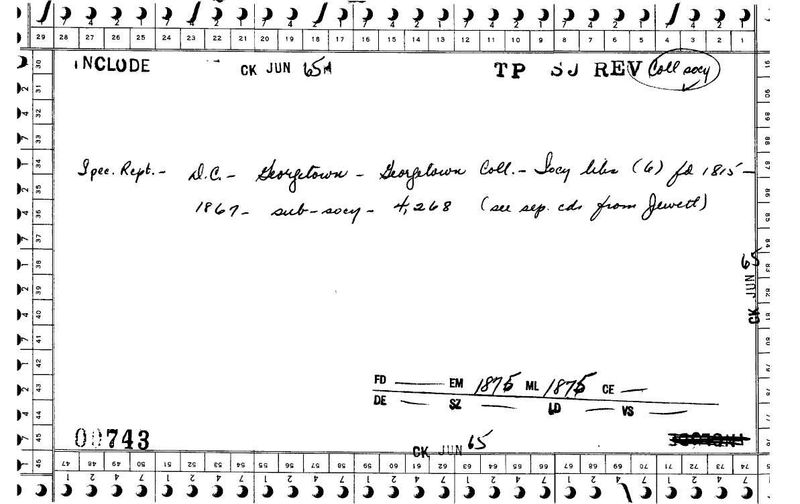 29 28 27 26 25 24 23 22 21 20 19 18 17 16 15 14 13 12 11 10 9 8 7 6 5 4 3 2 1
INCLUDE CK JUN 65 TP SJ REV Coll socy
Spec. Rept. - D.C. - Georgetown - Georgetown Coll. - Socy libs (6) fd 1815-
1867 - sub-socy - 4,268 (see sep. cds from Jewett)
CK JUN 65
FD — EM 1875 ML 1875 CE —
DE — SZ — LD — VS —
00743
CK JUN 65
47 48 49 50 51 52 53 54 55 56 57 58 59 60 61 62 63 64 65 66 67 68 69 70 71 72 73 74